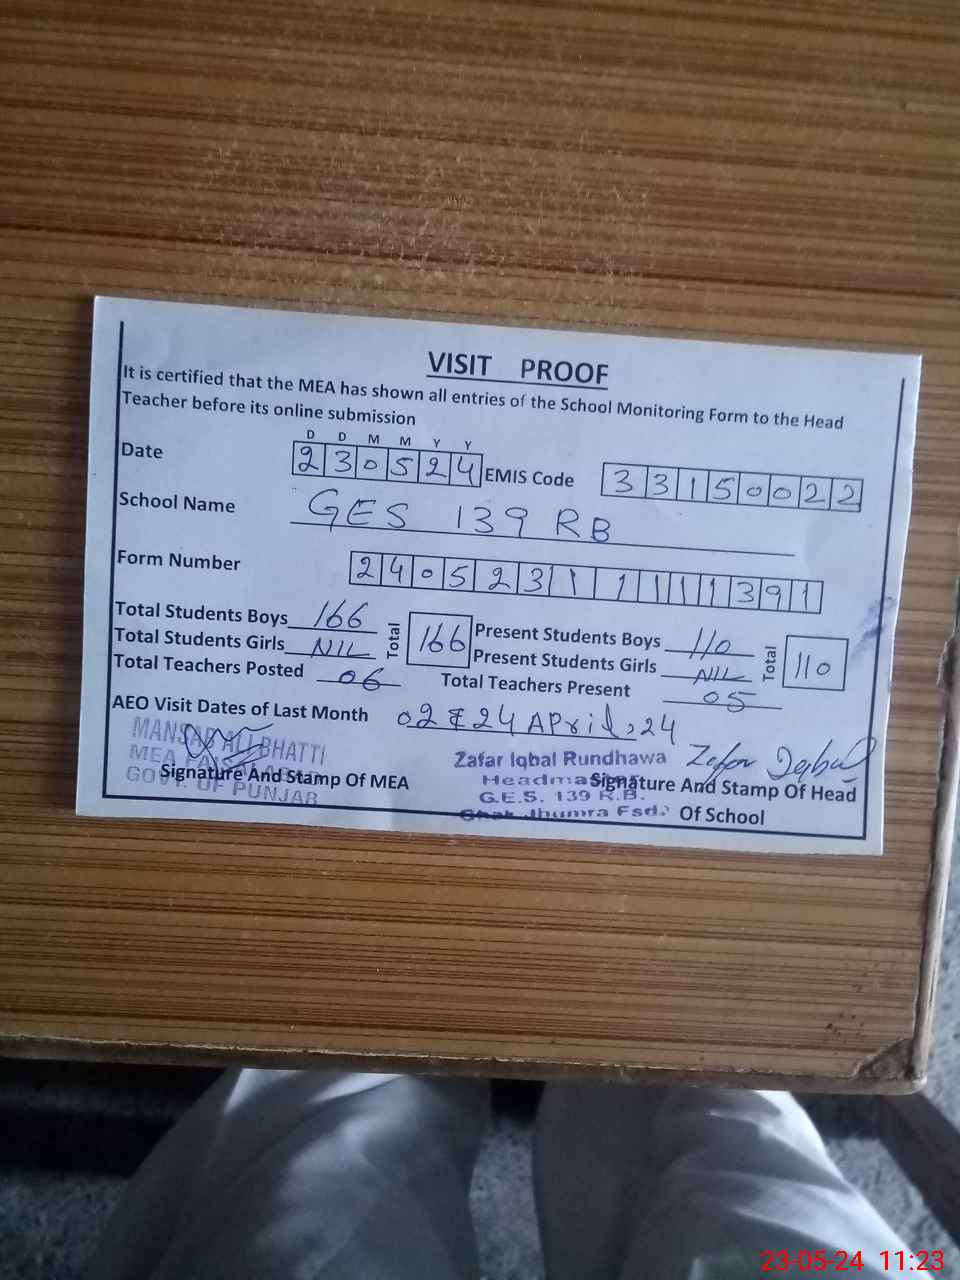 VISIT PROOF
It is certified that the MEA has shown all entries of the School Monitoring Form to the Head
Teacher before its online submission
D D M M Y Y
Date 230524 EMIS Code 33150022
School Name GES 139 RB
Form Number 240523111111391
Total Students Boys 166 Total 166 Present Students Boys 110 Total 110
Total Students Girls NIL Present Students Girls NIL
Total Teachers Posted 06 Total Teachers Present 05
AEO Visit Dates of Last Month 02 & 24 APril, 24
MANSAB ALI BHATTI
MEA FAISALABAD
GOVT. OF PUNJAB
Signature And Stamp Of MEA
Zafar Iqbal Rundhawa Zafar Iqbal
Headmaster
G.E.S. 139 R.B.
Chak Jhumra Fsd.
Signature And Stamp Of Head
Of School
23-05-24 11:23